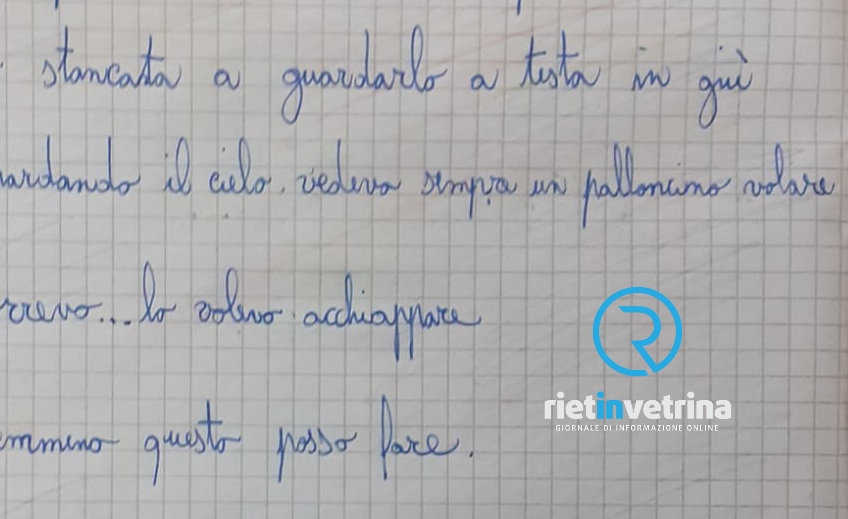 stancata a guardarlo a testa in giù
ardando il cielo. vedevo sempre un palloncino volare
rrevo... lo volevo acchiappare
emmeno questo posso fare.
rietinvetrina
GIORNALE DI INFORMAZIONE ONLINE